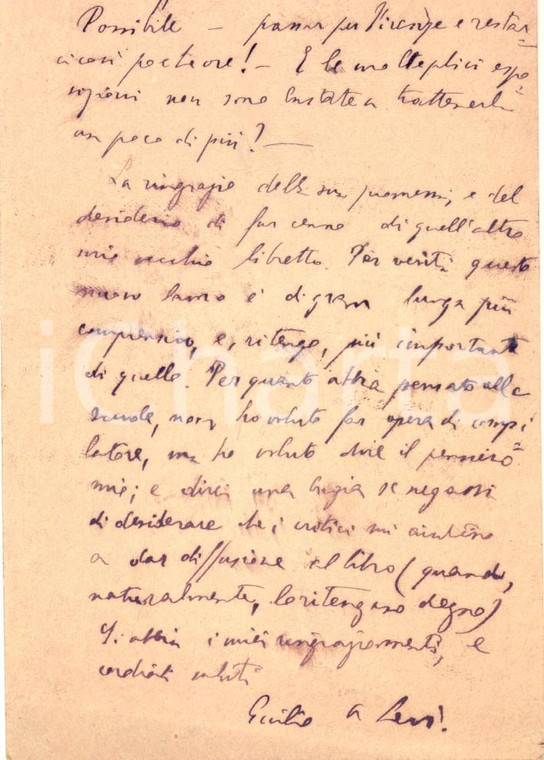 Possibile — passar per Firenze e restar-
ci così poche ore! — E le molteplici espo-
sizioni non sono bastate a trattenerla
un poco di più? —
La ringrazio della sua promessa, e del
desiderio di far cenno di quell'altro
mio vecchio libretto. Per verità questo
nuovo lavoro è di gran lunga più
comprensivo, e, ritengo, più importante
di quello. Per quanto abbia pensato alle
scuole, non ho voluto far opera di compi-
latore, ma ho voluto dire il pensiero
mio; e direi una bugia se negassi
di desiderare che i critici mi aiutino
a dar diffusione al libro (quando,
naturalmente, lo ritengano degno)
Si abbia i miei ringraziamenti, e
cordiali saluti
Giulio A Levi.
iCharta